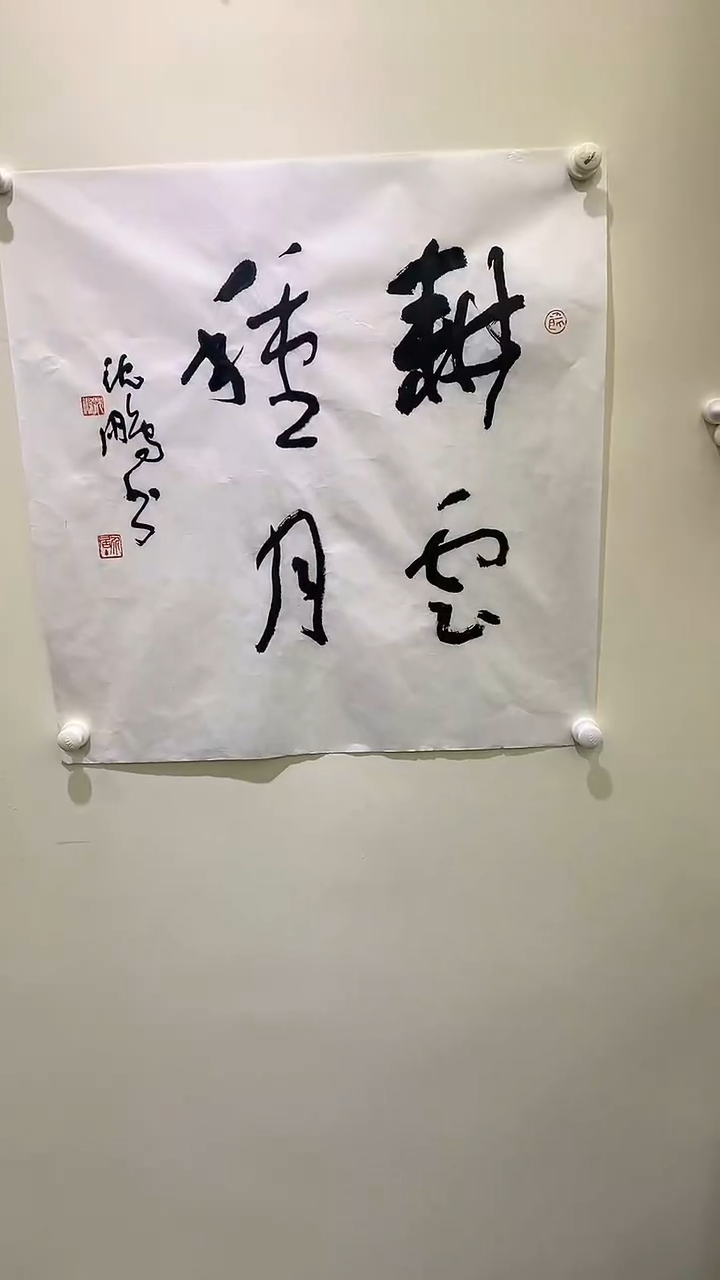 耕雲
種月
沈鵬書